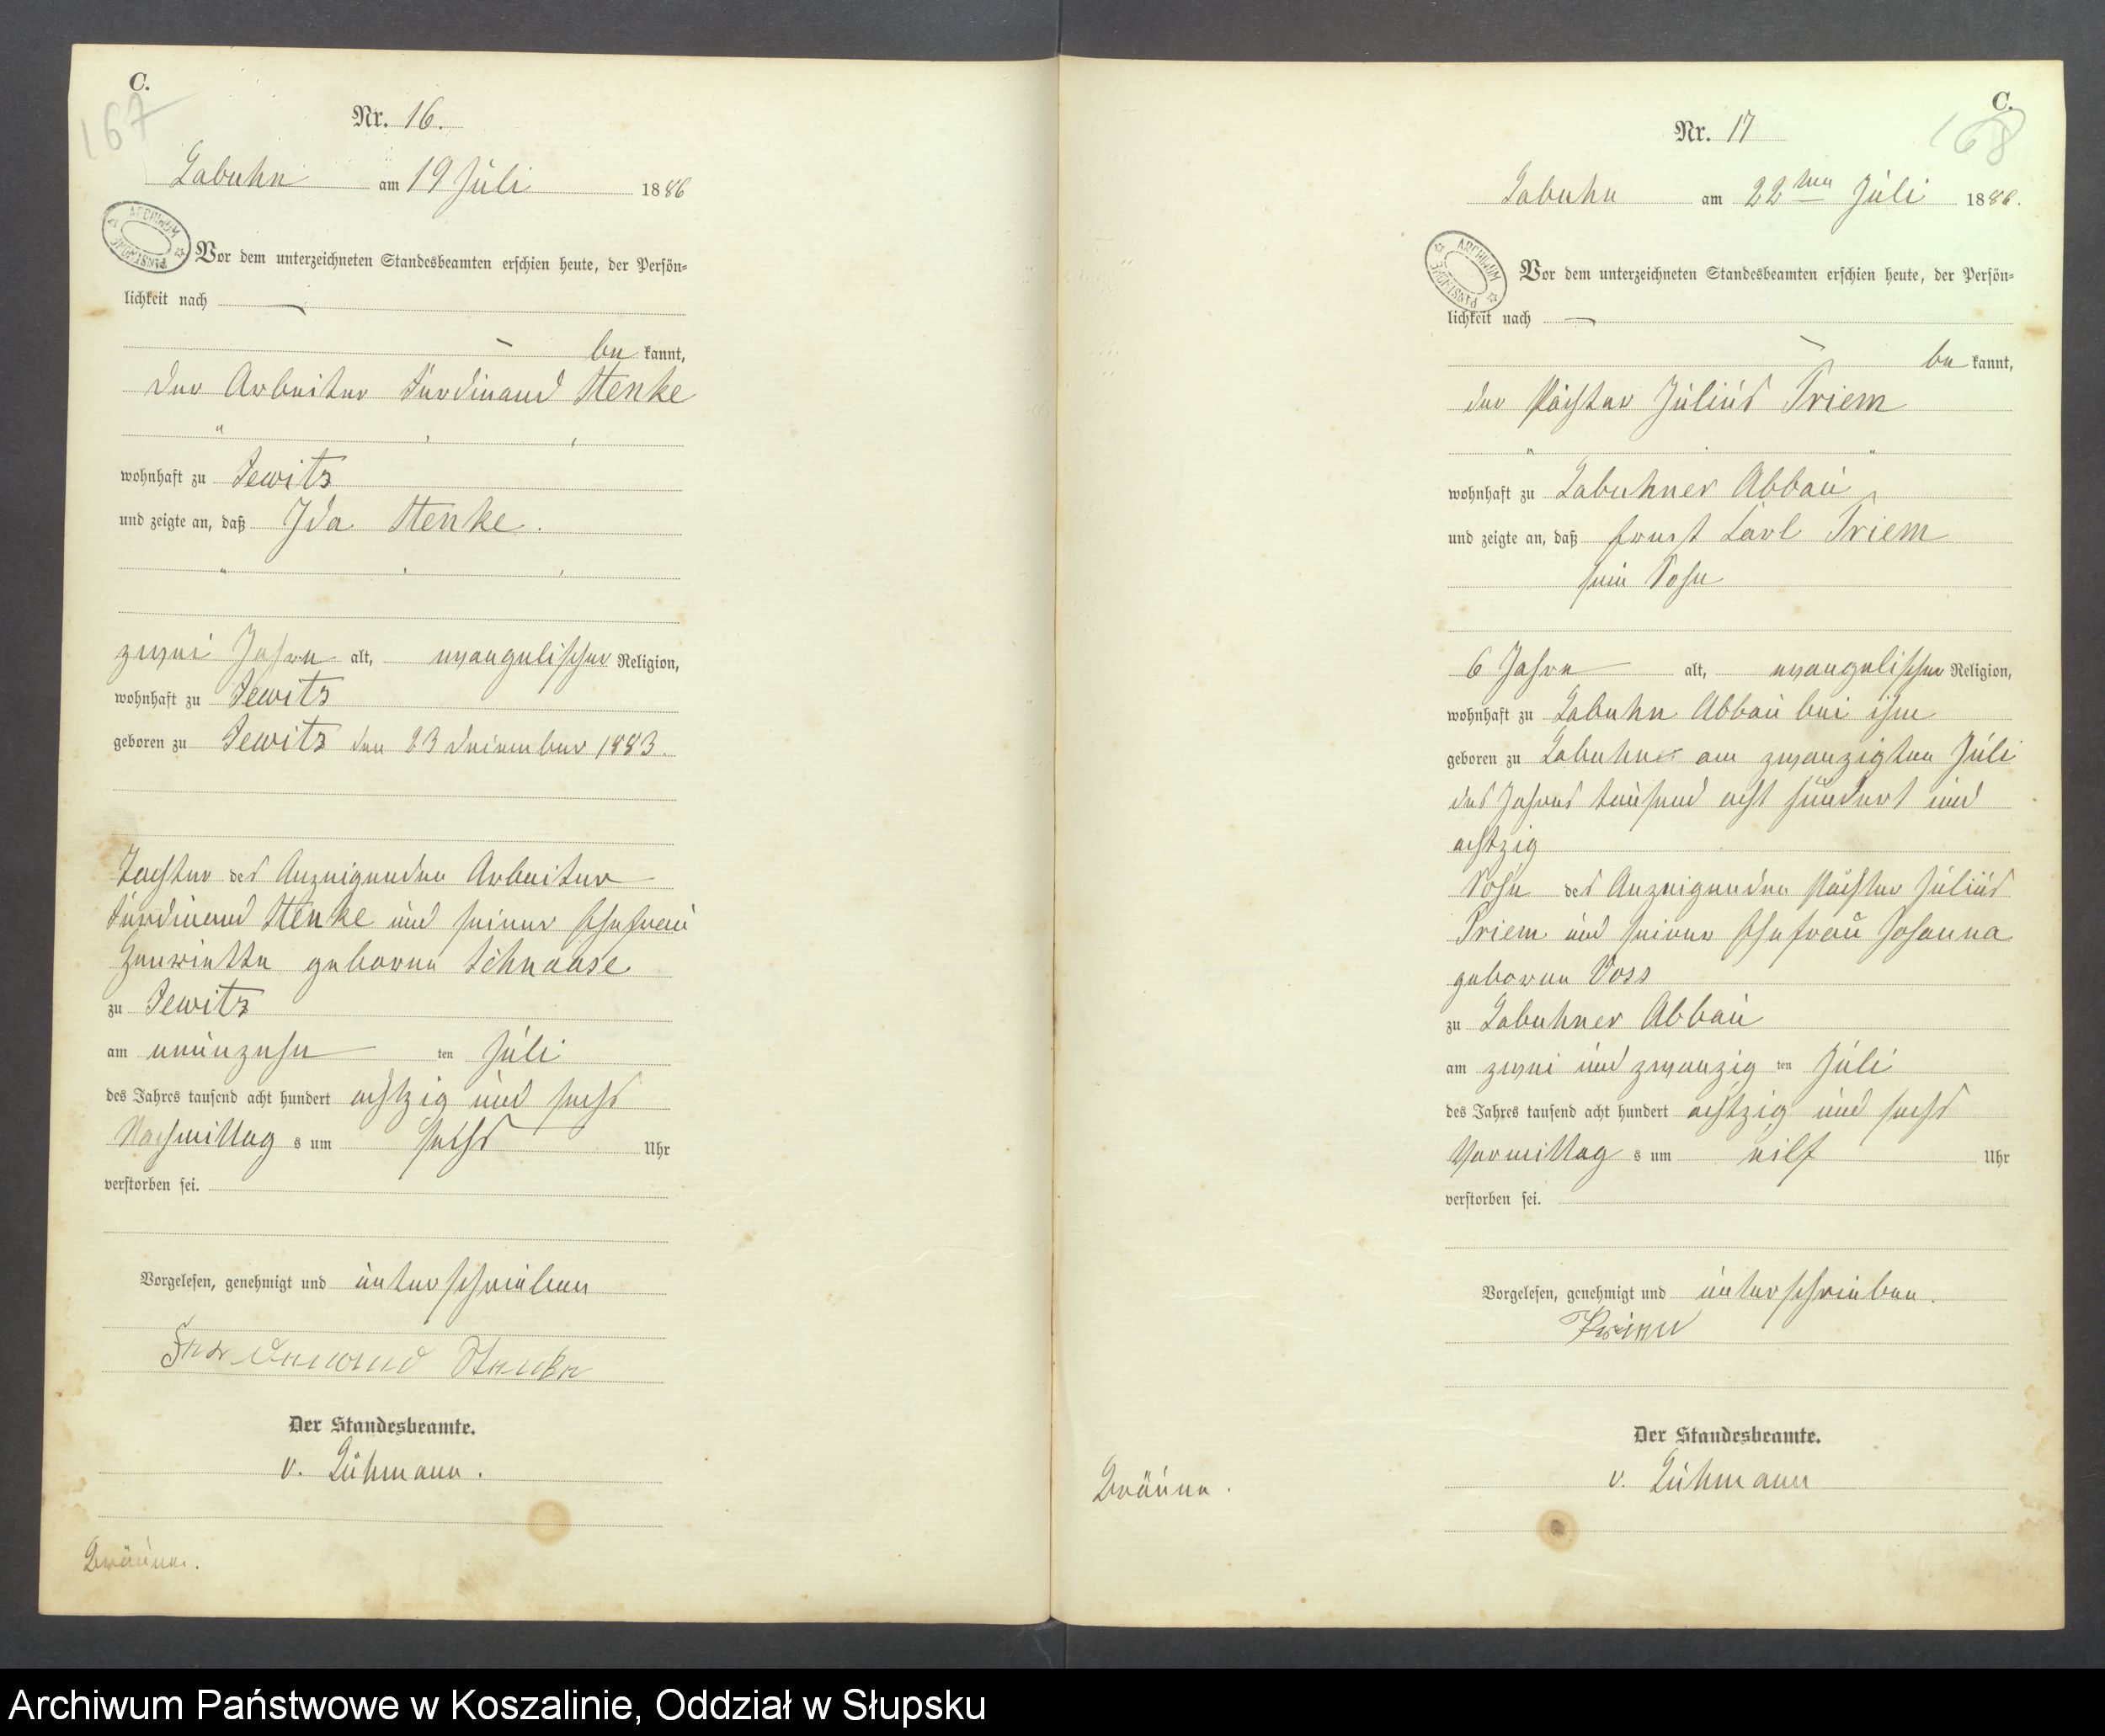 C.
167
Nr. 16.
Labuhn am 19 Juli 1886
ARCHIWUM PAŃSTWOWE
Vor dem unterzeichneten Standesbeamten erschien heute, der Persön-
lichkeit nach
be kannt,
der Arbeiter Ferdinand Stenke
wohnhaft zu Jewitz
und zeigte an, daß Ida Stenke.
zwei Jahre alt, evangelischer Religion,
wohnhaft zu Jewitz
geboren zu Jewitz den 23 1883.
Tochter des Anzeigenden Arbeiter
Ferdinand Stenke und seiner Ehefrau
Henriette geborene Schnaase
zu Jewitz
am neunzehn ten Juli
des Jahres tausend acht hundert achtzig und sechs
Nachmittag s um sechs Uhr
verstorben sei.
Vorgelesen, genehmigt und unterschrieben
Ferdinand Stenke
Der Standesbeamte.
v. Lühmann.
Bräune.
C.
168
Nr. 17
Labuhn am 22ten Juli 1886.
ARCHIWUM PAŃSTWOWE
Vor dem unterzeichneten Standesbeamten erschien heute, der Persön-
lichkeit nach
be kannt,
der Pächter Julius Priem
wohnhaft zu Labuhner Abbau
und zeigte an, daß Ernst Carl Priem
sein Sohn
6 Jahre alt, evangelischer Religion,
wohnhaft zu Labuhn Abbau bei ihm
geboren zu Labuhn am zwanzigten Juli
des Jahres tausend acht hundert und
achtzig
Sohn des Anzeigenden Pächter Julius
Priem und seiner Ehefrau Johanna
geborene Voss
zu Labuhner Abbau
am zwei und zwanzig ten Juli
des Jahres tausend acht hundert achtzig und sechs
Vormittag s um eilf Uhr
verstorben sei.
Vorgelesen, genehmigt und unterschrieben.
Priem
Der Standesbeamte.
v. Lühmann
Bräune.
Archiwum Państwowe w Koszalinie, Oddział w Słupsku